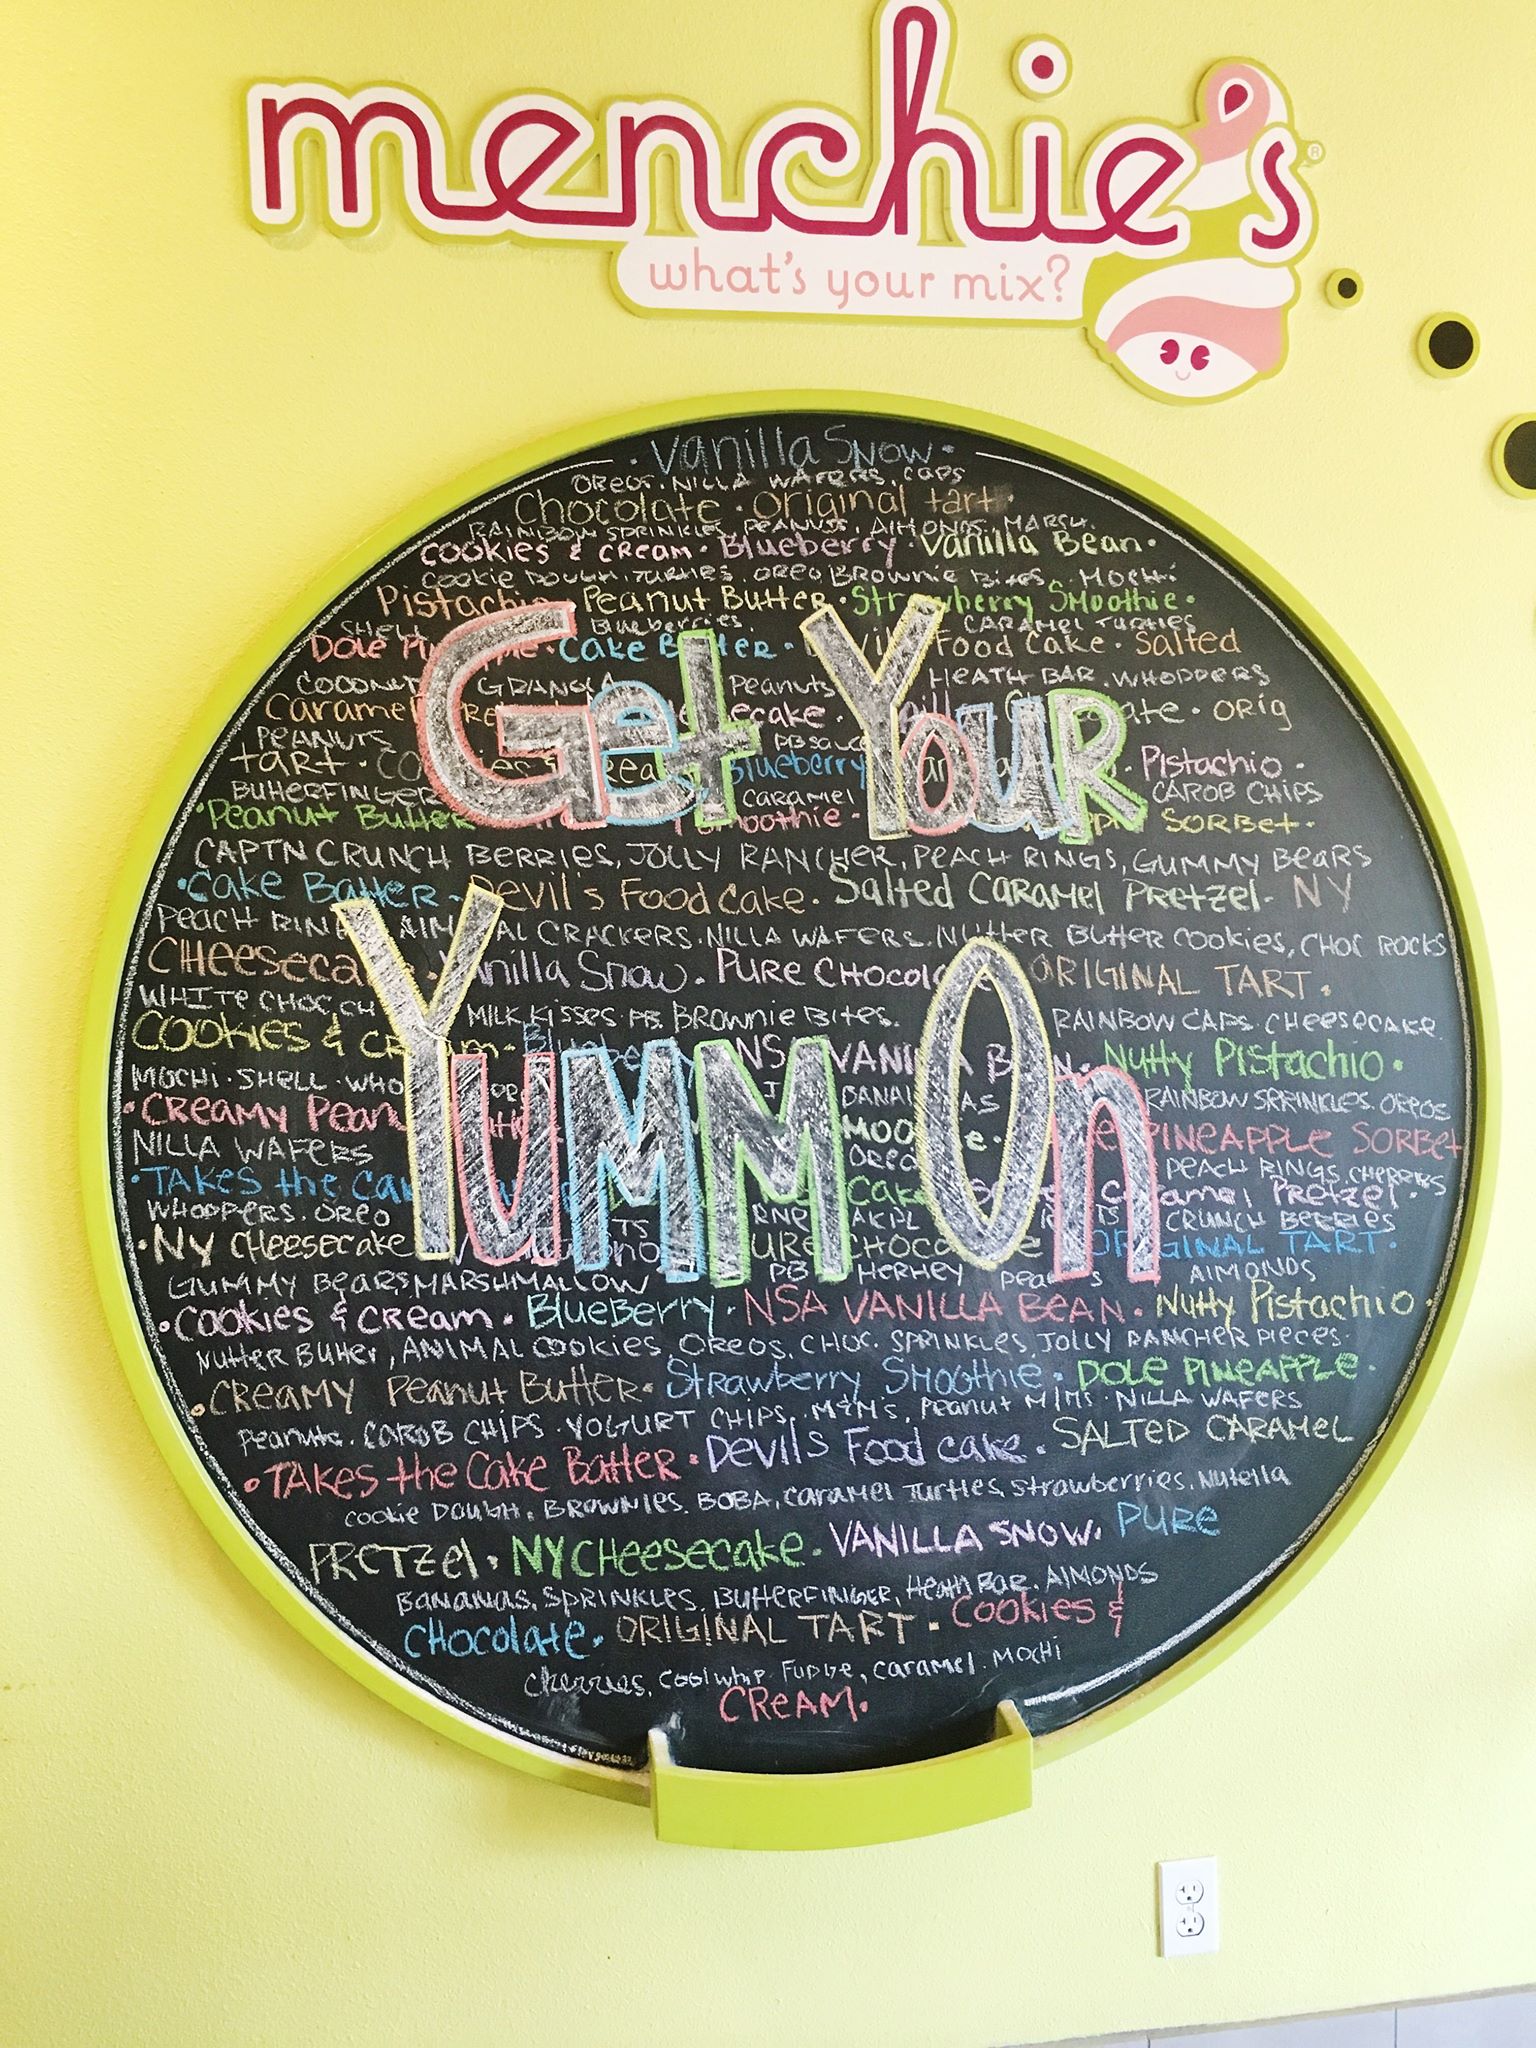 menchie's
®
what's your mix?
Vanilla Snow.
OREOS. NILLA WAFERS. CAPS
Chocolate. Original tart.
RAINBOW SPRINKLES, PEANUTS, AlMONDS, MARSH.
COOKIES & CREAM. Blueberry. Vanilla Bean.
COOKIE DOUGH. TURTLES. OREO BROWNIE BITES. MOCHI
Peanut Butter. Smoothie.
SHELL Blueberries. CARAMEL TURTLES
Dole Cake Food Cake. Salted
Peanuts HEATH BAR. WHOPPERS
Caramel ORIG
PEANUTS PB SAUCE
TART. Blueberry Pistachio.
BUTTERFINGER CARAMEL CAROB CHIPS
Peanut Butter SORBET.
CAPTN CRUNCH BERRIES, JOLLY RANCHER, PEACH RINGS, GUMMY BEARS
Get Your
Cake Batter. Devil's Food Cake. Salted CARAMEl PRETZEl. NY
PEACH CRACKERS. NILLA WAFERS. NUTTER BUTTER COOKIES, CHOC ROCKS
Vanilla Snow. PURE CHOCOL ORIGINAL TART.
WHITE CHOC. MILK. KISSES. PB. BROWNIE BITES. RAINBOW CAPS. CHEESECAKE
COOKIES & NSA VANILLA Nutty Pistachio.
MOCHI. SHELL. RAINBOW SPRINKLES. OREOS
CREAMY PINEAPPLE SORBET
NILLA WAFERS PEACH RINGS. CHERRIES
TAKES the Caramel Pretzel.
WHOPPERS. OREO CRUNCH BERRIES
NY CHEESECAKE ORIGINAL TART.
GUMMY BEARS, MARSHMALLOW PB HERHEY AlMONDS
Yumm On
COOKIES & CREAM. BlueBerry. NSA VANILLA BEAN. Nutty Pistachio.
NUTTER BUTTER, ANIMAL COOKIES, OREOS, CHOC. SPRINKLES, JOLLY RANCHER PIECES.
CREAMY Peanut Butter. Strawberry Smoothie. DOLE PINEAPPLE.
peanuts. CAROB CHIPS. YOGURT CHIPS. M&M'S, Peanut M/M'S. NILLA WAFERS
TAKES the Cake Batter. Devils Food cake. SALTED CARAMEL
COOKIE DOUGH. BROWNIES. BOBA, caramel Turtles, strawberries. Nutella
PRETZEL. NY CHEESECAKE. VANILLA SNOW. PURE
BANANAS, SPRINKLES, BUTTERFINGER, Heath BAR. AlMONDS
CHOCOLATE. ORIGINAL TART. COOKIES &
cherries, coolwhip. FUDGE, CARAMEL. MOCHI
CREAM.